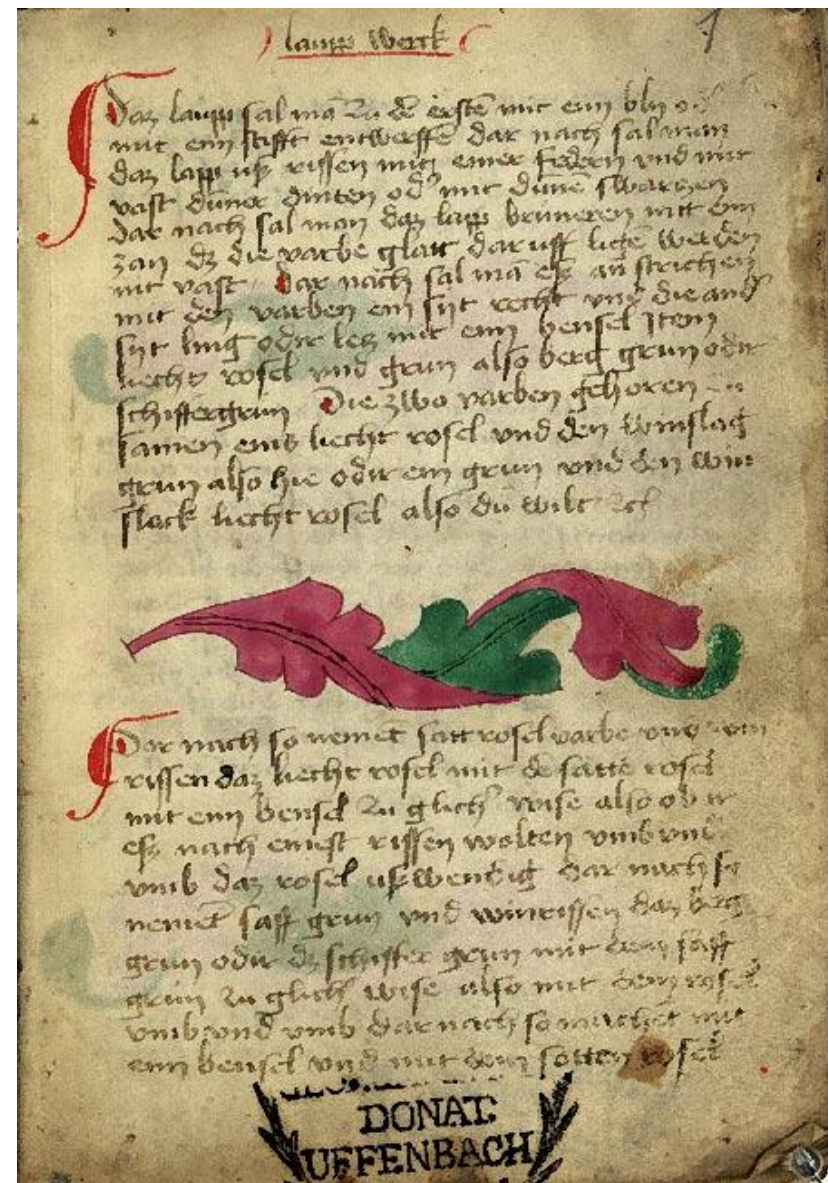 laupp werck
1
Daz laupp sal mā zu dē erstē mit eym bly od
mit eym stifft entwerffē dar nach sal man
daz lapp uß rissen mitz einer federn vnd mit
vast duner dinten od' mit dunē swarczen
dar nach sal man daz laup bruneren mit eim
zan dz die varbe glatt daruff ligē werden
nit vast Dar nach sal mā eß an strichen
mit den varben ein syt recht vnd die and'
syt ling odir letz mit eym bensel Item
liecht rosel vnd grun also berg grun odir
schiffergrun Die zwo varben gehoren zu
samen eins liecht rosel vnd den winslag
grun also hie odir ein grun vnd den win
slack liecht rosel also du wilt
Dar nach so nemēt satt rosel varbe vnd
rissen daz liecht rosel mit dē sattē rosel
mit eym bensel zu glich' wise also ob ir
eß nach eniest rissen wolten vmb vnd
vmb daz rosel ußwendig dar nach so
nemēt safft grun vnd winrissen daz berg
grun odir dz schiffer grun mit dem safft
grun zu glich' wise also mit dem rosel
vmb vnd vmb dar nach so machet mit
eym bensel vnd mit dem satten rosel
DONAT.
UFFENBACH